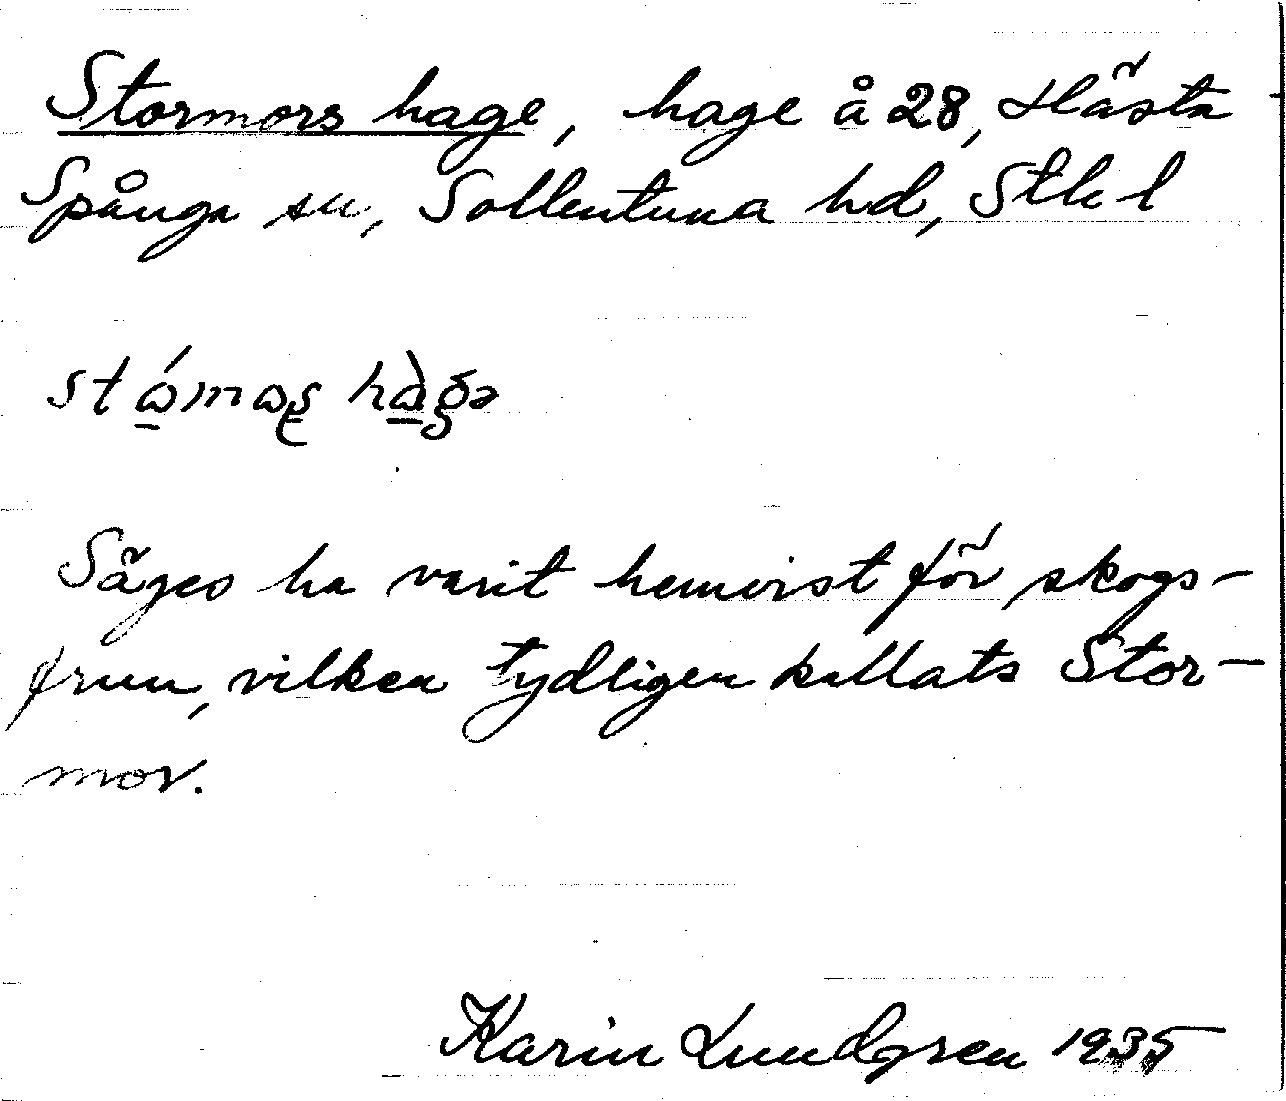 Stormors hage, hage å 28, Hästa
Spånga sn, Sollentuna hd, Sthl l
Säges ha varit hemvist för skogs-
frun, vilken tydligen kallats Stor-
mor.
Karin Lundgren 1935